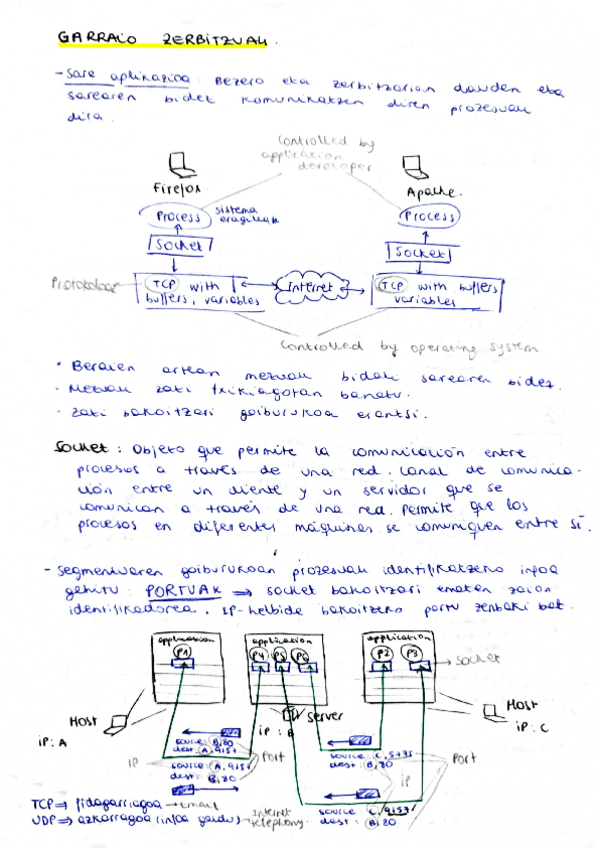 GARRAIO ZERBITZUAK.
- Sare aplikazioa: Bezero eta zerbitzarian dauden eta
sarearen bidez komunikatzen diren prozesuak
dira.
Controlled by
application
developer
Firefox
Apache.
Process
sistema
eragileak
Process
Socket
Socket
Protokoloa
TCP with
buffers, variables
Internet
TCP with buffers,
variables
Controlled by operating system
· Beraien artean mezuak bidali sarearen bidez.
· Mezuak zati txikiagotan banatu.
· Zati bakoitzari goiburukoa erantsi.
Socket: Objeto que permite la comunicación entre
procesos a través de una red. Canal de comunica-
ción entre un cliente y un servidor que se
comunican a través de una red. Permite que los
procesos en diferentes máquinas se comuniquen entre sí.
- Segmentuaren goiburukoan prozesuak identifikatzeko infoa
gehitu: PORTUAK ⇒ socket bakoitzari ematen zaion
identifikadorea. IP-helbide bakoitzeko portu zenbaki bat.
application
application
application
P1
P4 P5 P6
P2 P3
Socket
Host
iP: A
server
iP: B
Host
iP: C
source: B, 80
dest: A, 9157
source: A, 9157
dest: B, 80
IP
Port
source: C, 5775
dest: B, 80
IP
Port
source: C, 9157
dest: B, 80
TCP ⇒ fidagarriagoa → Email
UDP ⇒ azkarragoa (infoa galdu) → Internet
telephony.